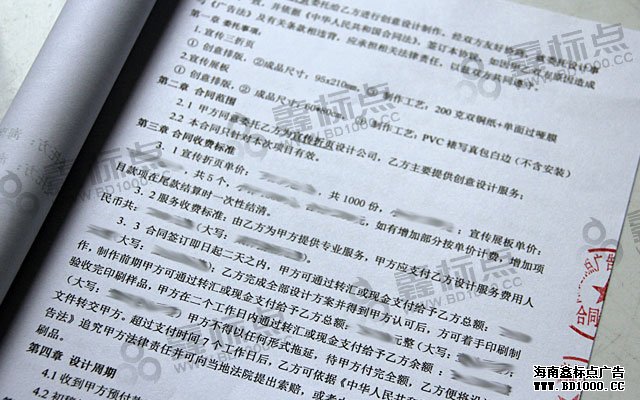 第一章 委托事项:
1. 宣传三折页
① 创意排版, ②成品尺寸: 95x210mm, ③ 制作工艺: 200 克双铜纸+单面过哑膜
2. 宣传展板
① 创意排版, ② 成品尺寸: ③ 制作工艺: PVC 裱写真包白边 (不含安装)
第二章 合同范围
2.1 甲方同意委托乙方为宣传折页设计公司, 乙方主要提供创意设计服务;
2.2 本合同只针对本次项目有效。
第三章 合同收费标准
3.1 宣传折页单价: 共 1000 份, 宣传展板单价:
共 5 个, 如有增加部分按单价计费, 增加项
目款项在尾款结算时一次性结清。
3.2 服务收费标准: 由乙方为甲方提供专业服务, 甲方应支付乙方设计服务费用人
民币共: (大写:
3.3 合同签订即日起二天之内, 甲方可通过转汇或现金支付给予乙方总额:
(大写: 乙方完成全部设计方案并得到甲方认可后, 方可着手印刷制
作, 制作前期甲方可通过转汇或现金支付给予乙方总额: 元整 (大写:
验收完印刷样品, 甲方在二个工作日内通过转汇或现金支付给予乙方余额:
(大写: 甲方不得以任何形式拖延, 待甲方付完全额, 乙方便将设计
文件转交甲方。超过支付时间 7 个工作日后, 乙方可依据《中华人民共和
告法》追究甲方法律责任并可向当地法院提出索赔,
刷品。
第四章 设计周期
4.1 收到甲方预付款
4.2 初稿
鑫标点
WWW.BD1000.COM
点广告
合同
海南鑫标点广告
www.BD1000.COM